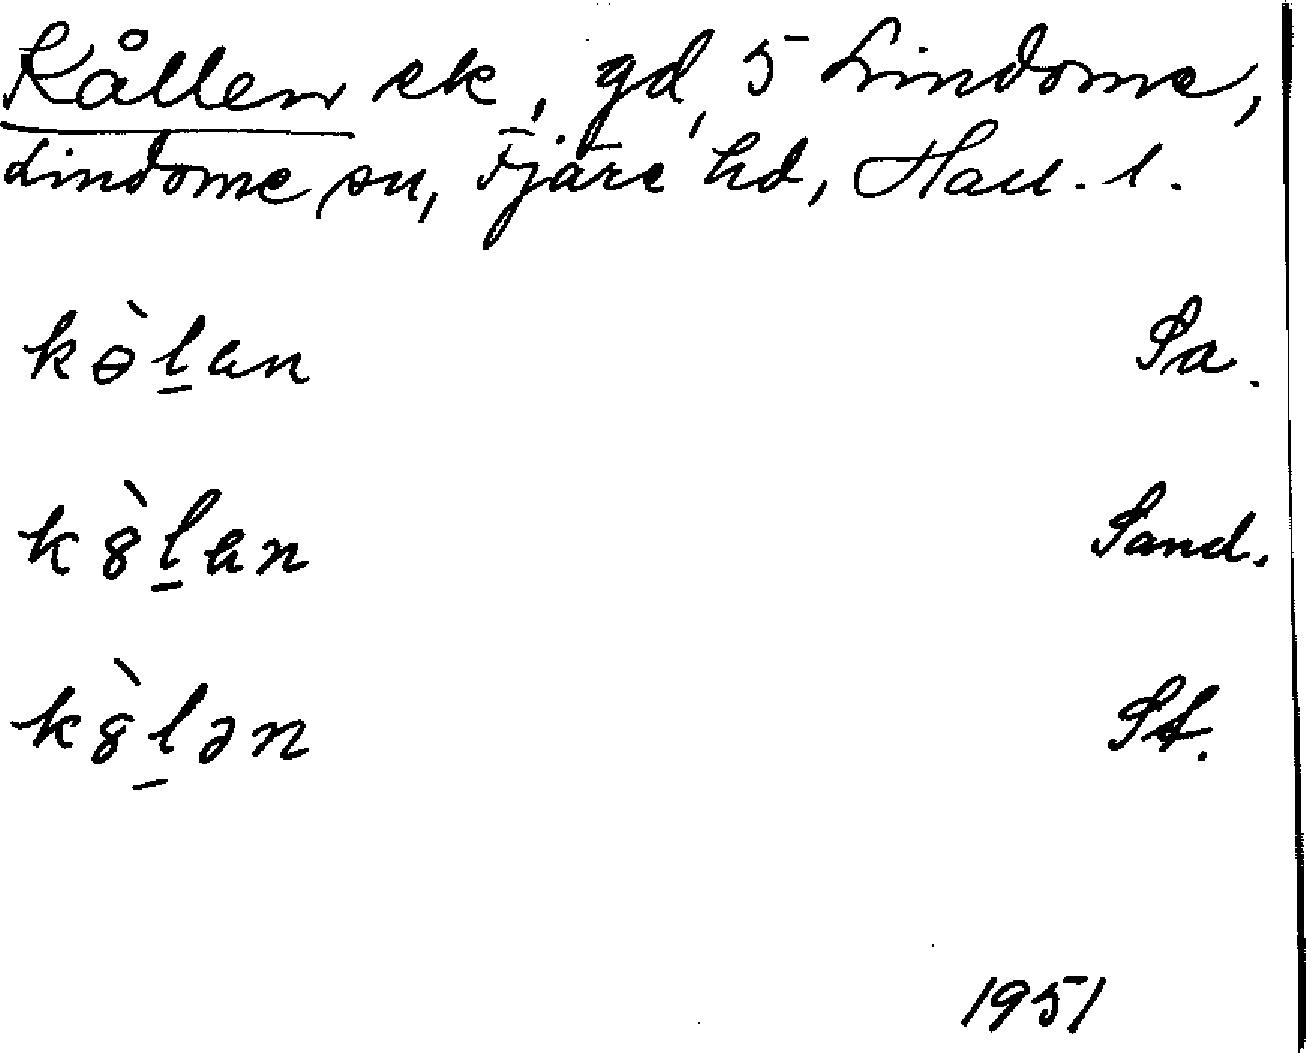 Kållen ek, gd, 5 Lindome,
Lindome sn, Fjäre hd, Hall. l.
kɵ̀l̠an Sa.
k8̀l̠an Sand.
k8̀l̠ən St.
1951